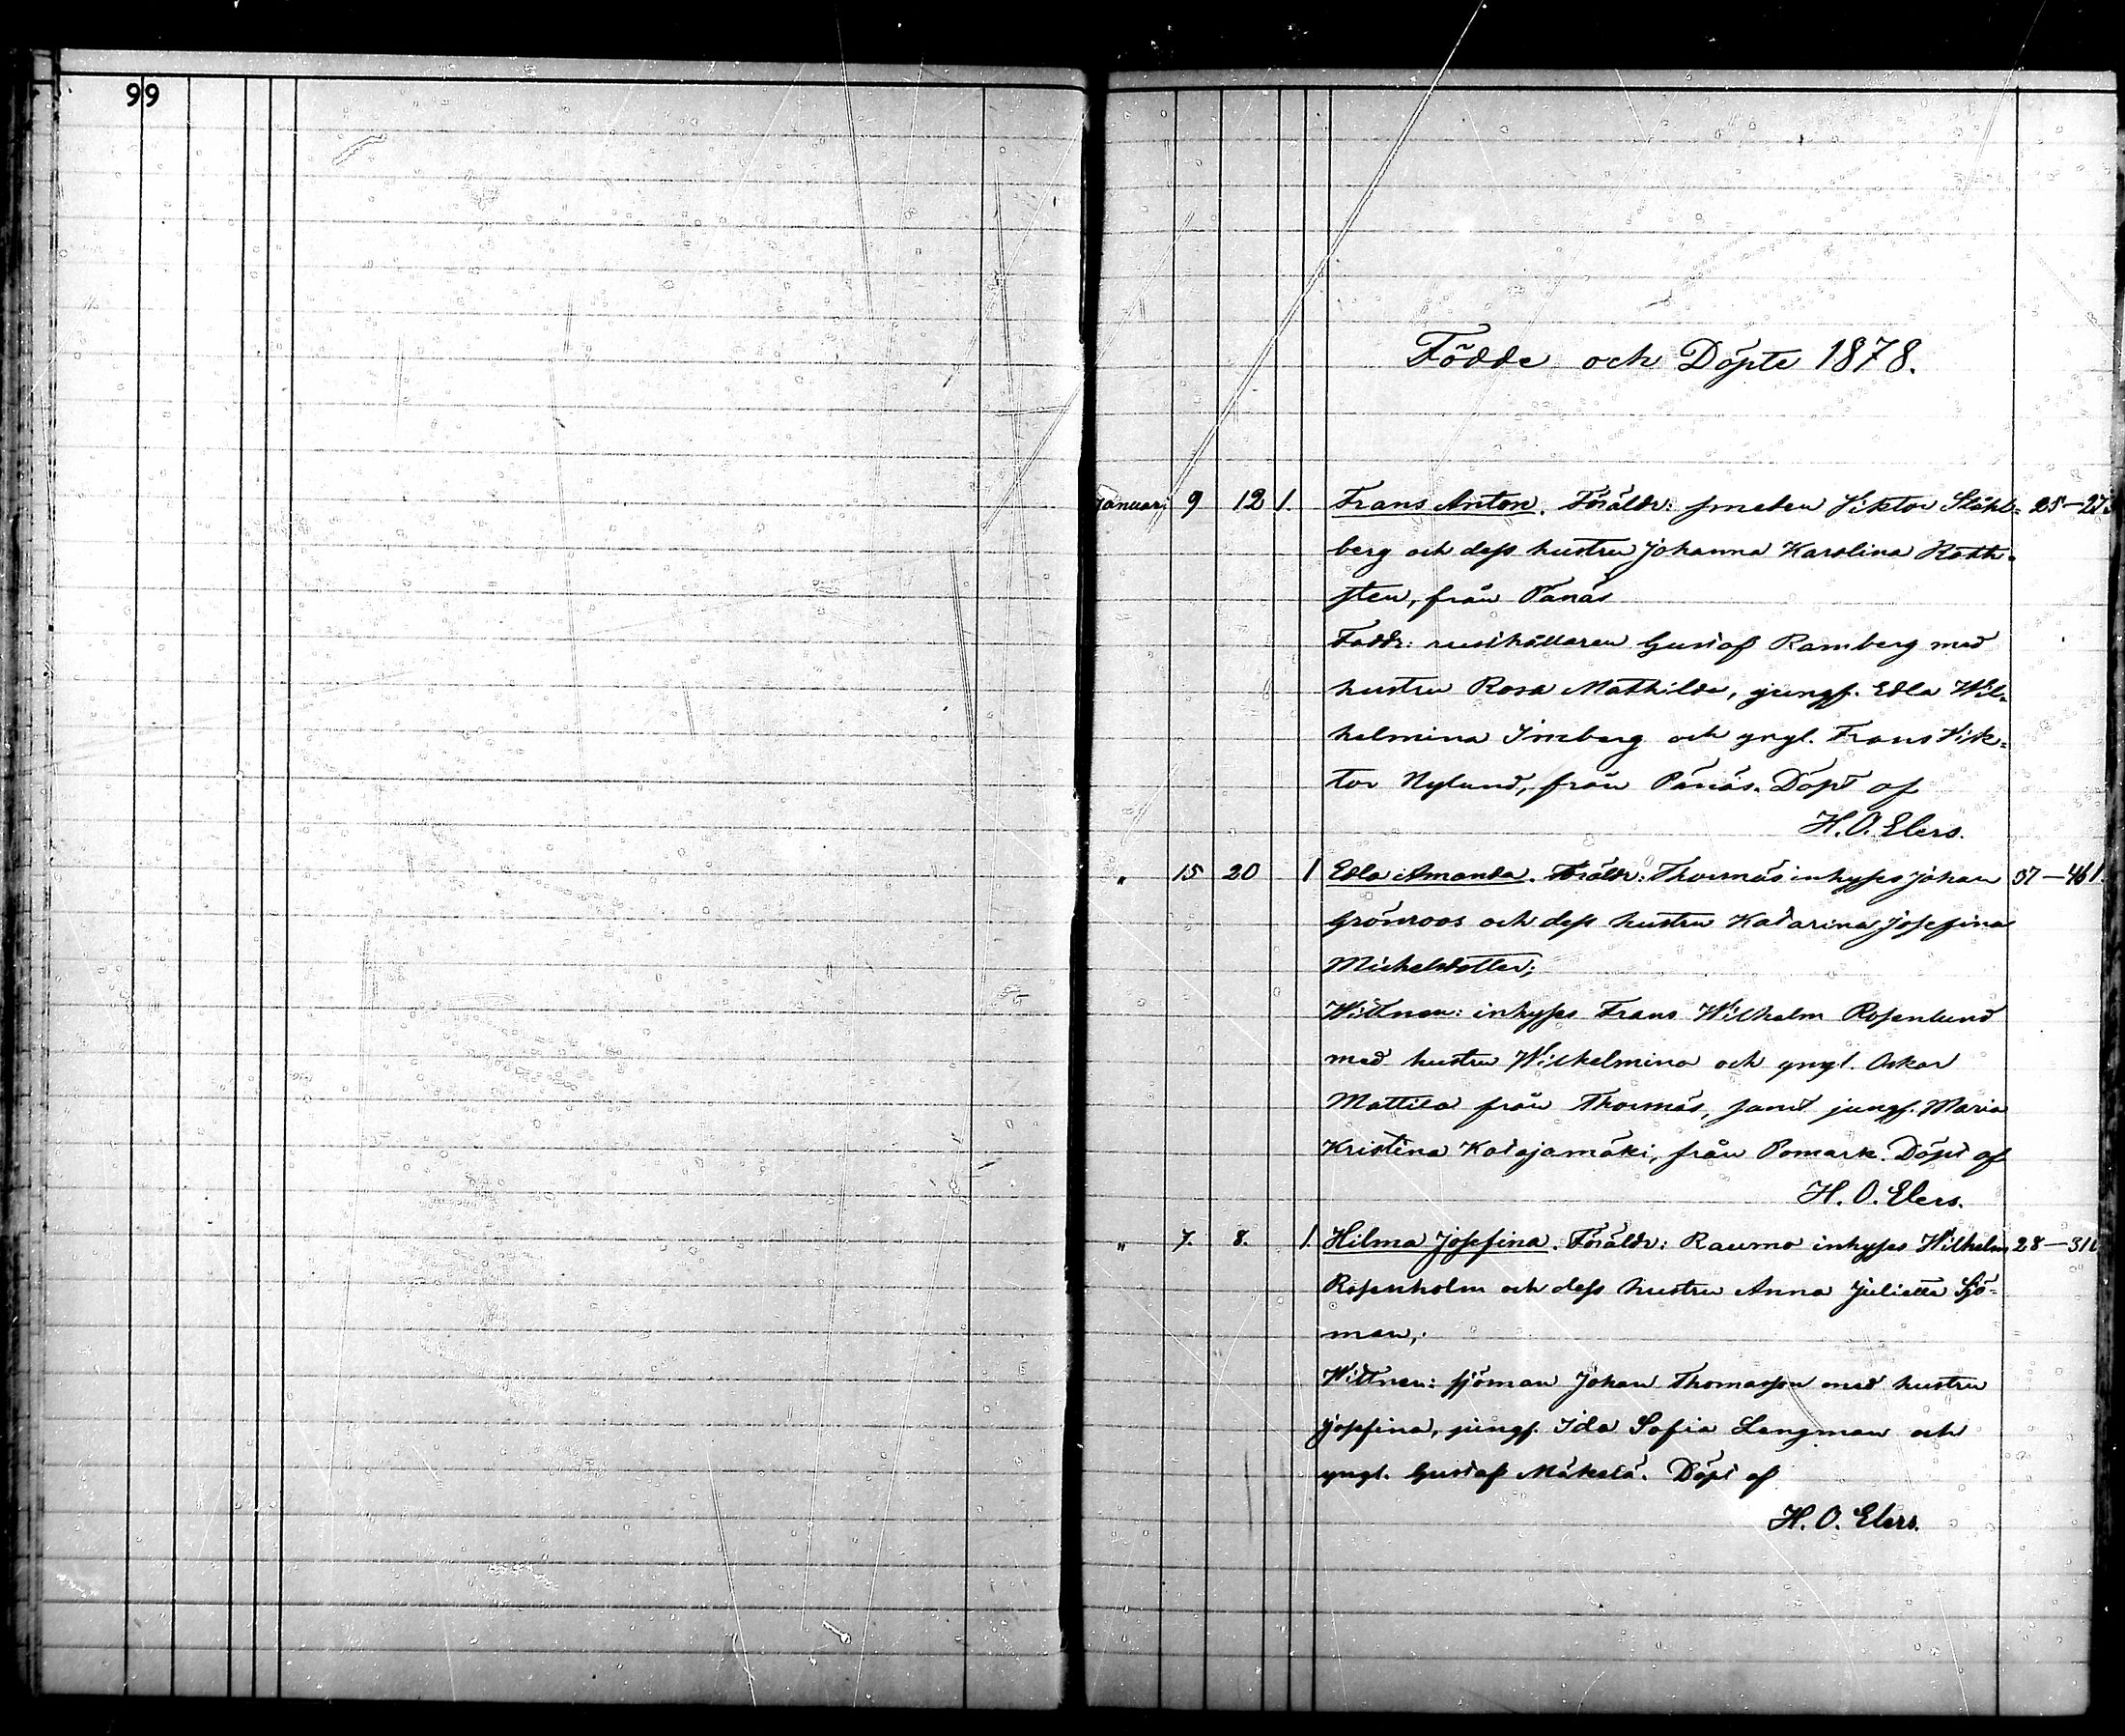 99
Födde och Döpte 1878.
Januari 9 12 1. Frans Anton. Föräldr: smeden Viktor Ståhl= 25-27
berg och dess hustru Johanna Karolina Roth=
sten, från Pånäs
Faddr: rusthållaren Gustaf Ramberg med
hustru Rosa Mathilda, jungf. Edla Wil=
helmina Ineberg och yngl. Frans Vik=
tor Nylund, från Pånäs. Döpt af
H. O. Elers.
" 15 20 1 Edla Amanda. Föräldr: Thornäs inhyses Johan 37-461.
Grönroos och dess hustru Katarina Josefina
Michelsdotter;
Wittnen: inhyses Frans Wilhelm Rosenlund
med hustru Wilhelmina och yngl. Oskar
Mattila från Thornäs, samt jungf. Maria
Kristina Katajamäki, från Pomark. Döpt af
H. O. Elers.
" 7. 8. 1. Hilma Josefina. Föräldr: Raumo inhyses Wilhelm 28-31
Rosenholm och dess hustru Anna Julietta Sjö=
man,
Wittnen: sjöman Johan Thomasson med hustru
Josefina, jungf. Ida Sofia Langman och
yngl. Gustaf Mäkelä. Döpt af
H. O. Elers.